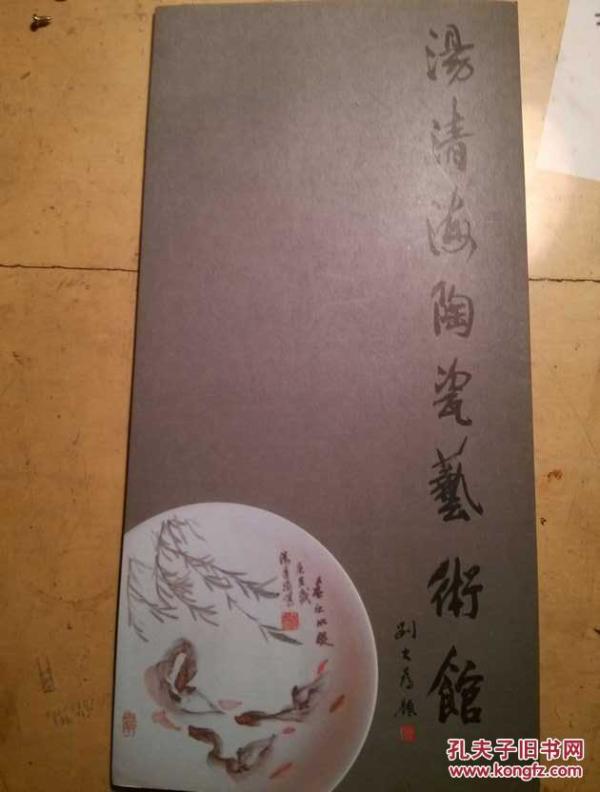 湯清海陶瓷藝術館
劉大為題
春江水暖
孔夫子旧书网
www.kongfz.com